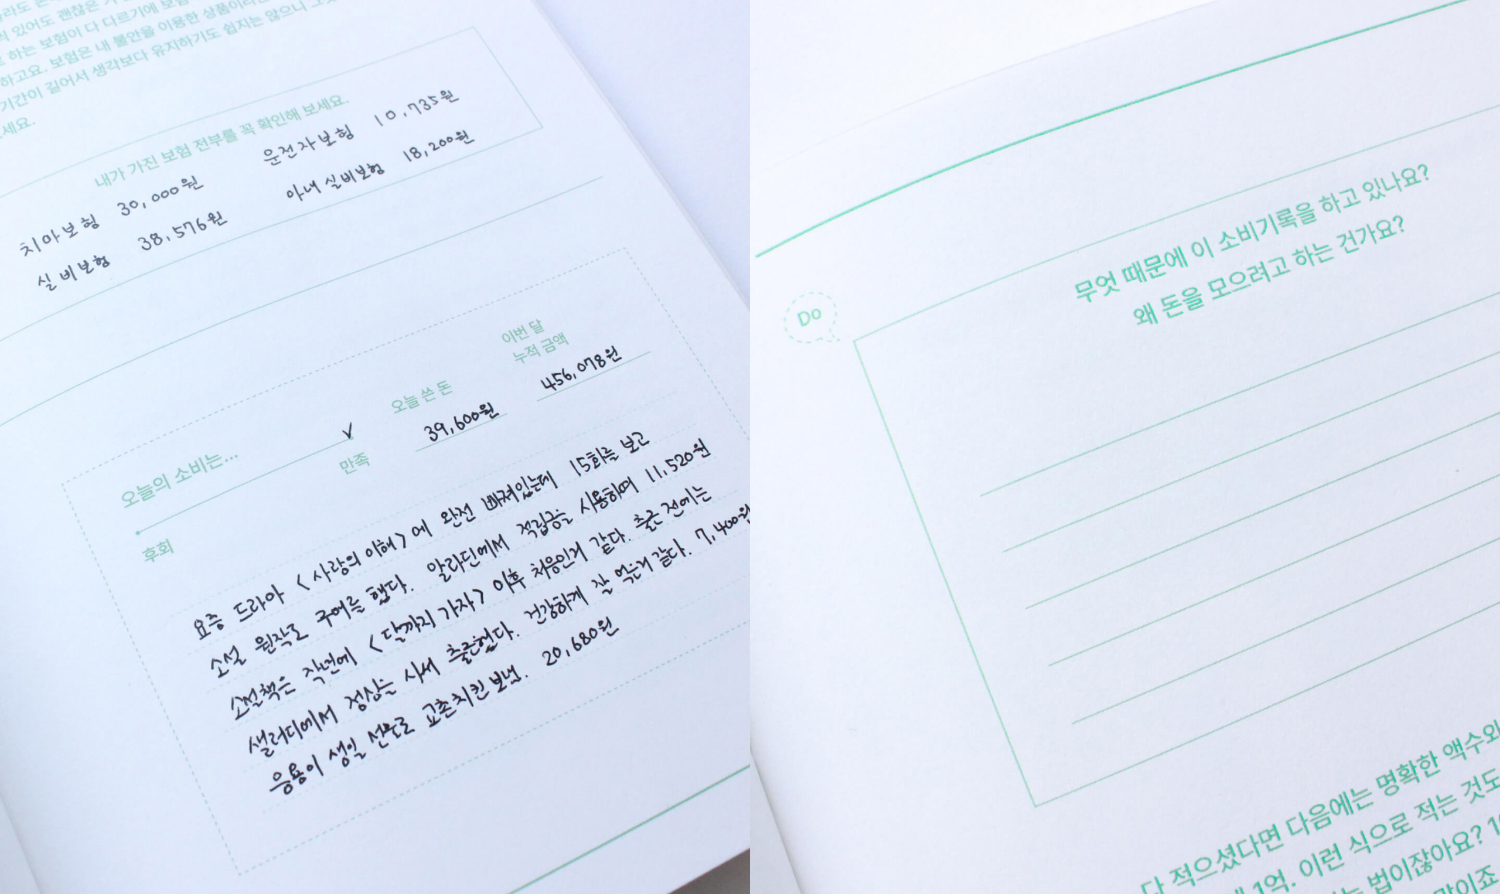 있어도 괜찮은
하는 보험이 다 다르기에 보험
하고요. 보험은 내 불안을 이용한 상품이라
기간이 길어서 생각보다 유지하기도 쉽지는 않으니
세요.
내가 가진 보험 전부를 꼭 확인해 보세요.
치아보험 30,000원 운전자보험 10,735원
실비보험 38,576원 아내 실비보험 18,200원
오늘의 소비는...
후회
만족
오늘 쓴 돈
39,600원
이번 달
누적 금액
456,078원
요즘 드라마 <사랑의 이해>에 완전 빠져있는데 15회를 보고
소설 원작도 구매를 했다. 알라딘에서 적립금을 사용하며 11,520원
소설책은 작년에 <달까지 가자> 이후 처음인거 같다. 출근 전에는
샐러디에서 점심을 사서 출근했다. 건강하게 잘 먹는거 같다. 7,400원
응용이 생일 선물로 교촌치킨 보냄. 20,680원
Do
무엇 때문에 이 소비기록을 하고 있나요?
왜 돈을 모으려고 하는 건가요?
다 적으셨다면 다음에는 명확한 액수와
1억. 이런 식으로 적는 것도
는 법이잖아요?